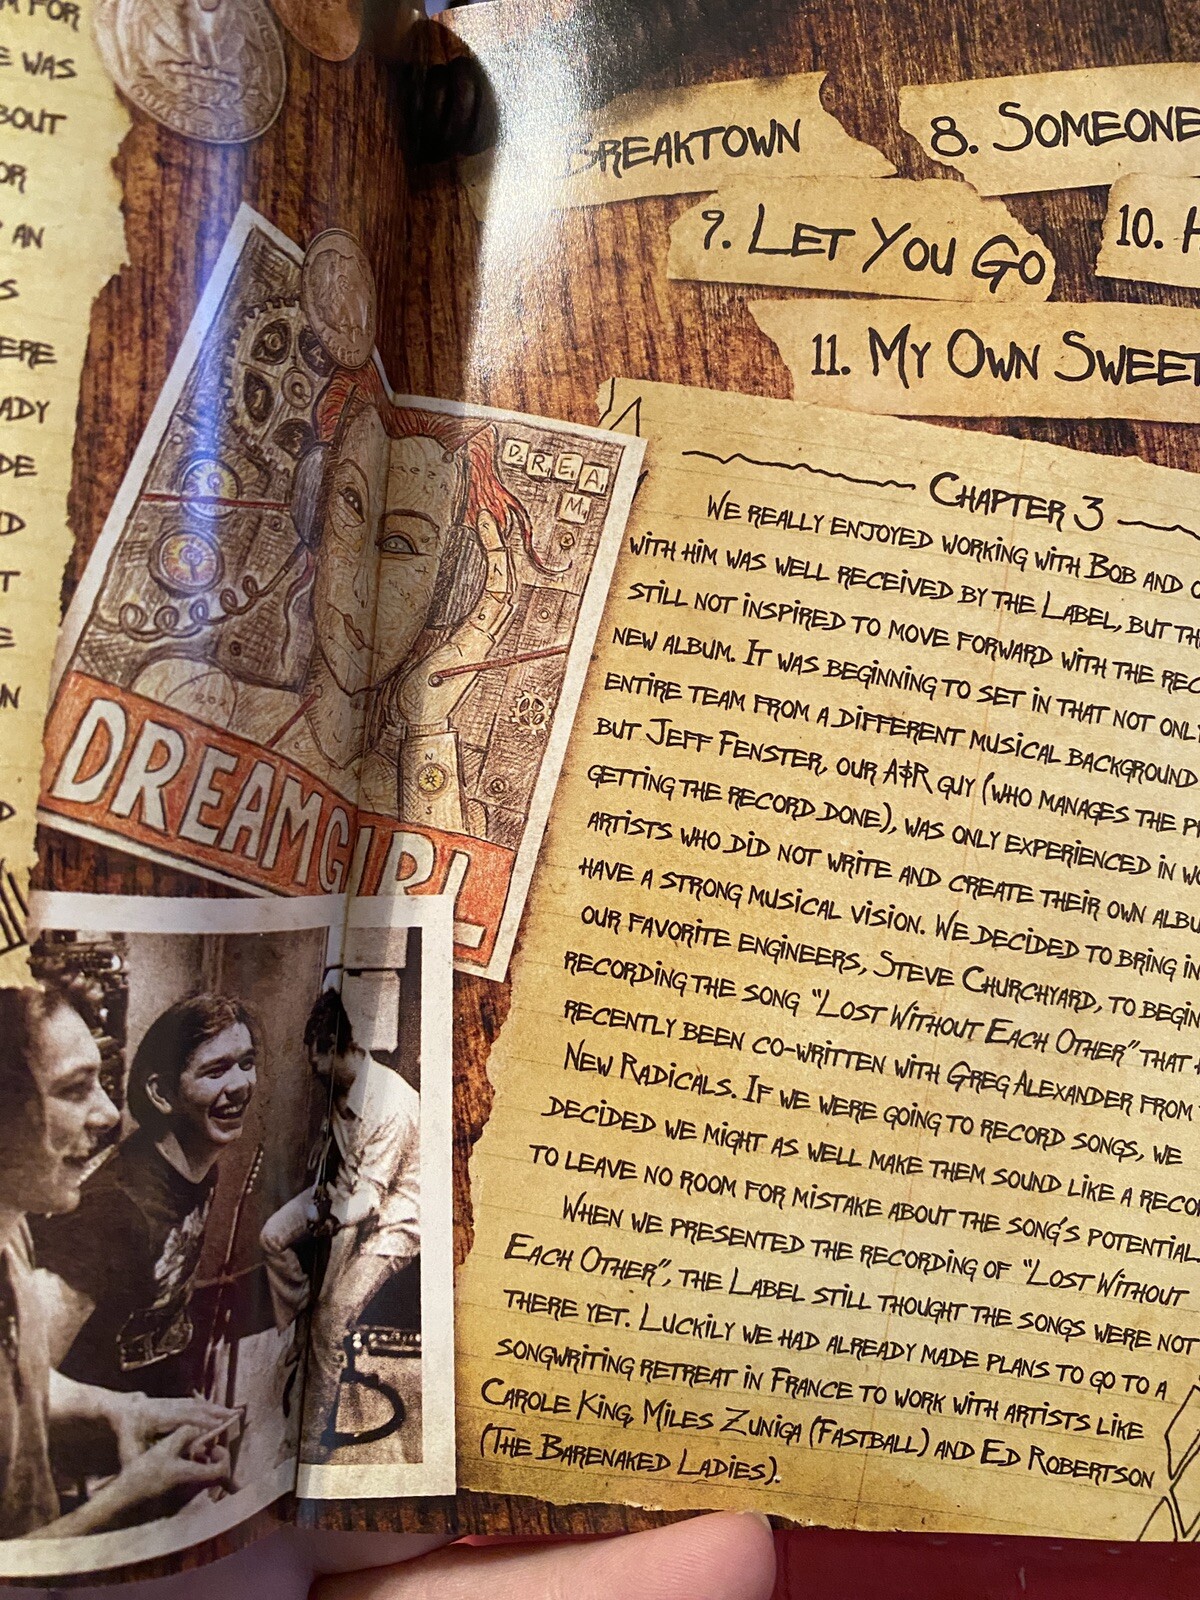 M FOR
E WAS
BOUT
OR
AN
S
ERE
ADY
DE
D
T
E
N
D
BREAKTOWN
8. SOMEONE
9. LET YOU GO
10. H
11. MY OWN SWEET
D R E A
M
N
S
DREAMGIRL
CHAPTER 3
WE REALLY ENJOYED WORKING WITH BOB AND
WITH HIM WAS WELL RECEIVED BY THE LABEL, BUT TH
STILL NOT INSPIRED TO MOVE FORWARD WITH THE REC
NEW ALBUM. IT WAS BEGINNING TO SET IN THAT NOT ONLY
ENTIRE TEAM FROM A DIFFERENT MUSICAL BACKGROUND
BUT JEFF FENSTER, OUR A&R GUY (WHO MANAGES THE P
GETTING THE RECORD DONE), WAS ONLY EXPERIENCED IN WO
ARTISTS WHO DID NOT WRITE AND CREATE THEIR OWN ALBU
HAVE A STRONG MUSICAL VISION. WE DECIDED TO BRING IN
OUR FAVORITE ENGINEERS, STEVE CHURCHYARD, TO BEGIN
RECORDING THE SONG "LOST WITHOUT EACH OTHER" THAT
RECENTLY BEEN CO-WRITTEN WITH GREG ALEXANDER FROM
NEW RADICALS. IF WE WERE GOING TO RECORD SONGS, WE
DECIDED WE MIGHT AS WELL MAKE THEM SOUND LIKE A RECO
TO LEAVE NO ROOM FOR MISTAKE ABOUT THE SONG'S POTENTIAL.
WHEN WE PRESENTED THE RECORDING OF "LOST WITHOUT
EACH OTHER", THE LABEL STILL THOUGHT THE SONGS WERE NOT
THERE YET. LUCKILY WE HAD ALREADY MADE PLANS TO GO TO A
SONGWRITING RETREAT IN FRANCE TO WORK WITH ARTISTS LIKE
CAROLE KING, MILES ZUNIGA (FASTBALL) AND ED ROBERTSON
(THE BARENAKED LADIES).